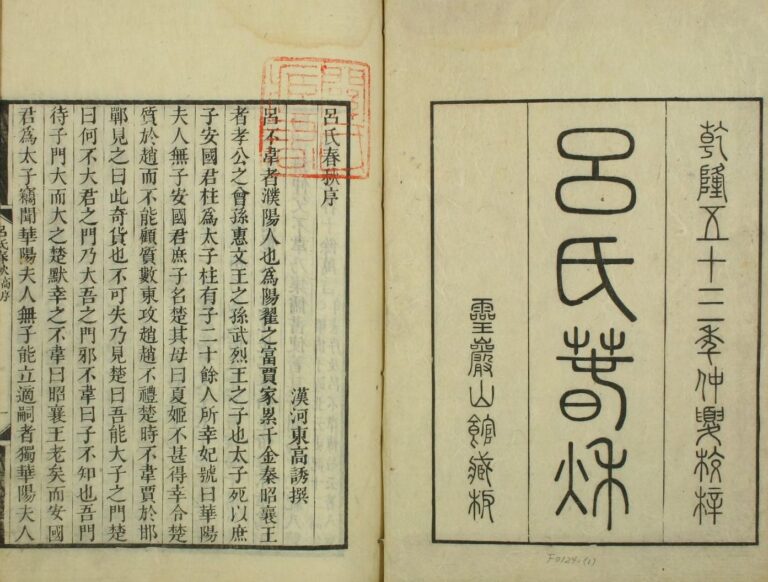 乾隆五十三秊仲夏校梓
呂氏萅秌
靈巖山館藏板
F0124-(1)
呂氏春秋序
漢河東高誘撰
呂不韋者濮陽人也爲陽翟之富賈家累千金秦昭襄王
者孝公之曾孫惠文王之孫武烈王之子也太子死以庶
子安國君柱爲太子柱有子二十餘人所幸妃號曰華陽
夫人無子安國君庶子名楚其母曰夏姬不甚得幸令楚
質於趙而不能顧質數東攻趙趙不禮楚時不韋賈於邯
鄲見之曰此奇貨也不可失乃見楚曰吾能大子之門楚
曰何不大君之門乃大吾之門邪不韋曰子不知也吾門
待子門大而大之楚默幸之不韋曰昭襄王老矣而安國
君爲太子竊聞華陽夫人無子能立適嗣者獨華陽夫人
呂氏春秋高序
一